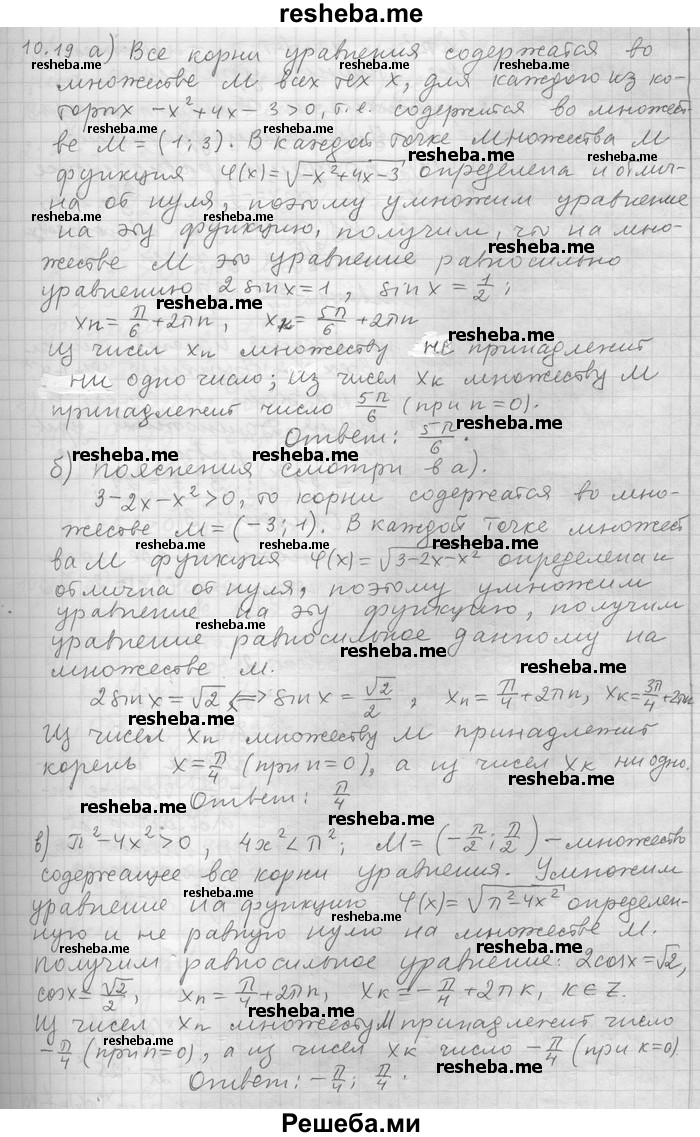 resheba.me
10.19 а) Все корни уравнения содержатся во
множестве М всех тех x, для каждого из ко-
торых -x²+4x-3>0, т.е. содержится во множест-
ве М = (1; 3). В каждой точке множества М
функция φ(x)=√(-x²+4x-3) определена и отлич-
на от нуля, поэтому умножим уравнение
на эту функцию, получим, что на мно-
жестве М это уравнение равносильно
уравнению 2 sin x = 1, sin x = 1/2;
xn = π/6 + 2πn, xк = 5π/6 + 2πn
Из чисел xn множеству не принадлежит
ни одно число; из чисел xк множеству М
принадлежит число 5π/6 (при n=0).
Ответ: 5π/6.
б) пояснения смотри в а).
3-2x-x²>0, то корни содержатся во мно-
жестве М = (-3; 1). В каждой точке множест
ва М функция φ(x)=√(3-2x-x²) определена и
отлична от нуля, поэтому умножим
уравнение на эту функцию, получим
уравнение равносильное данному на
множестве М.
2 sin x = √2 <=> sin x = √2/2, xn = π/4 + 2πn, xк = 3π/4 + 2πn
Из чисел xn множеству М принадлежит
корень x = π/4 (при n=0), а из чисел xк ни одно.
Ответ: π/4
в) π²-4x²>0, 4x²<π²; М = (-π/2; π/2) – множество
содержащее все корни уравнения. Умножим
уравнение на функцию φ(x)=√(π²-4x²) определен-
ную и не равную нулю на множестве М.
получим равносильное уравнение: 2cosx=√2,
cosx = √2/2, xn = π/4 + 2πn, xк = -π/4 + 2πк, к∈Z.
Из чисел xn множеству М принадлежит число
-π/4 (при n=0), а из чисел xк число -π/4 (при к=0)
Ответ: -π/4; π/4.
Решеба.ми